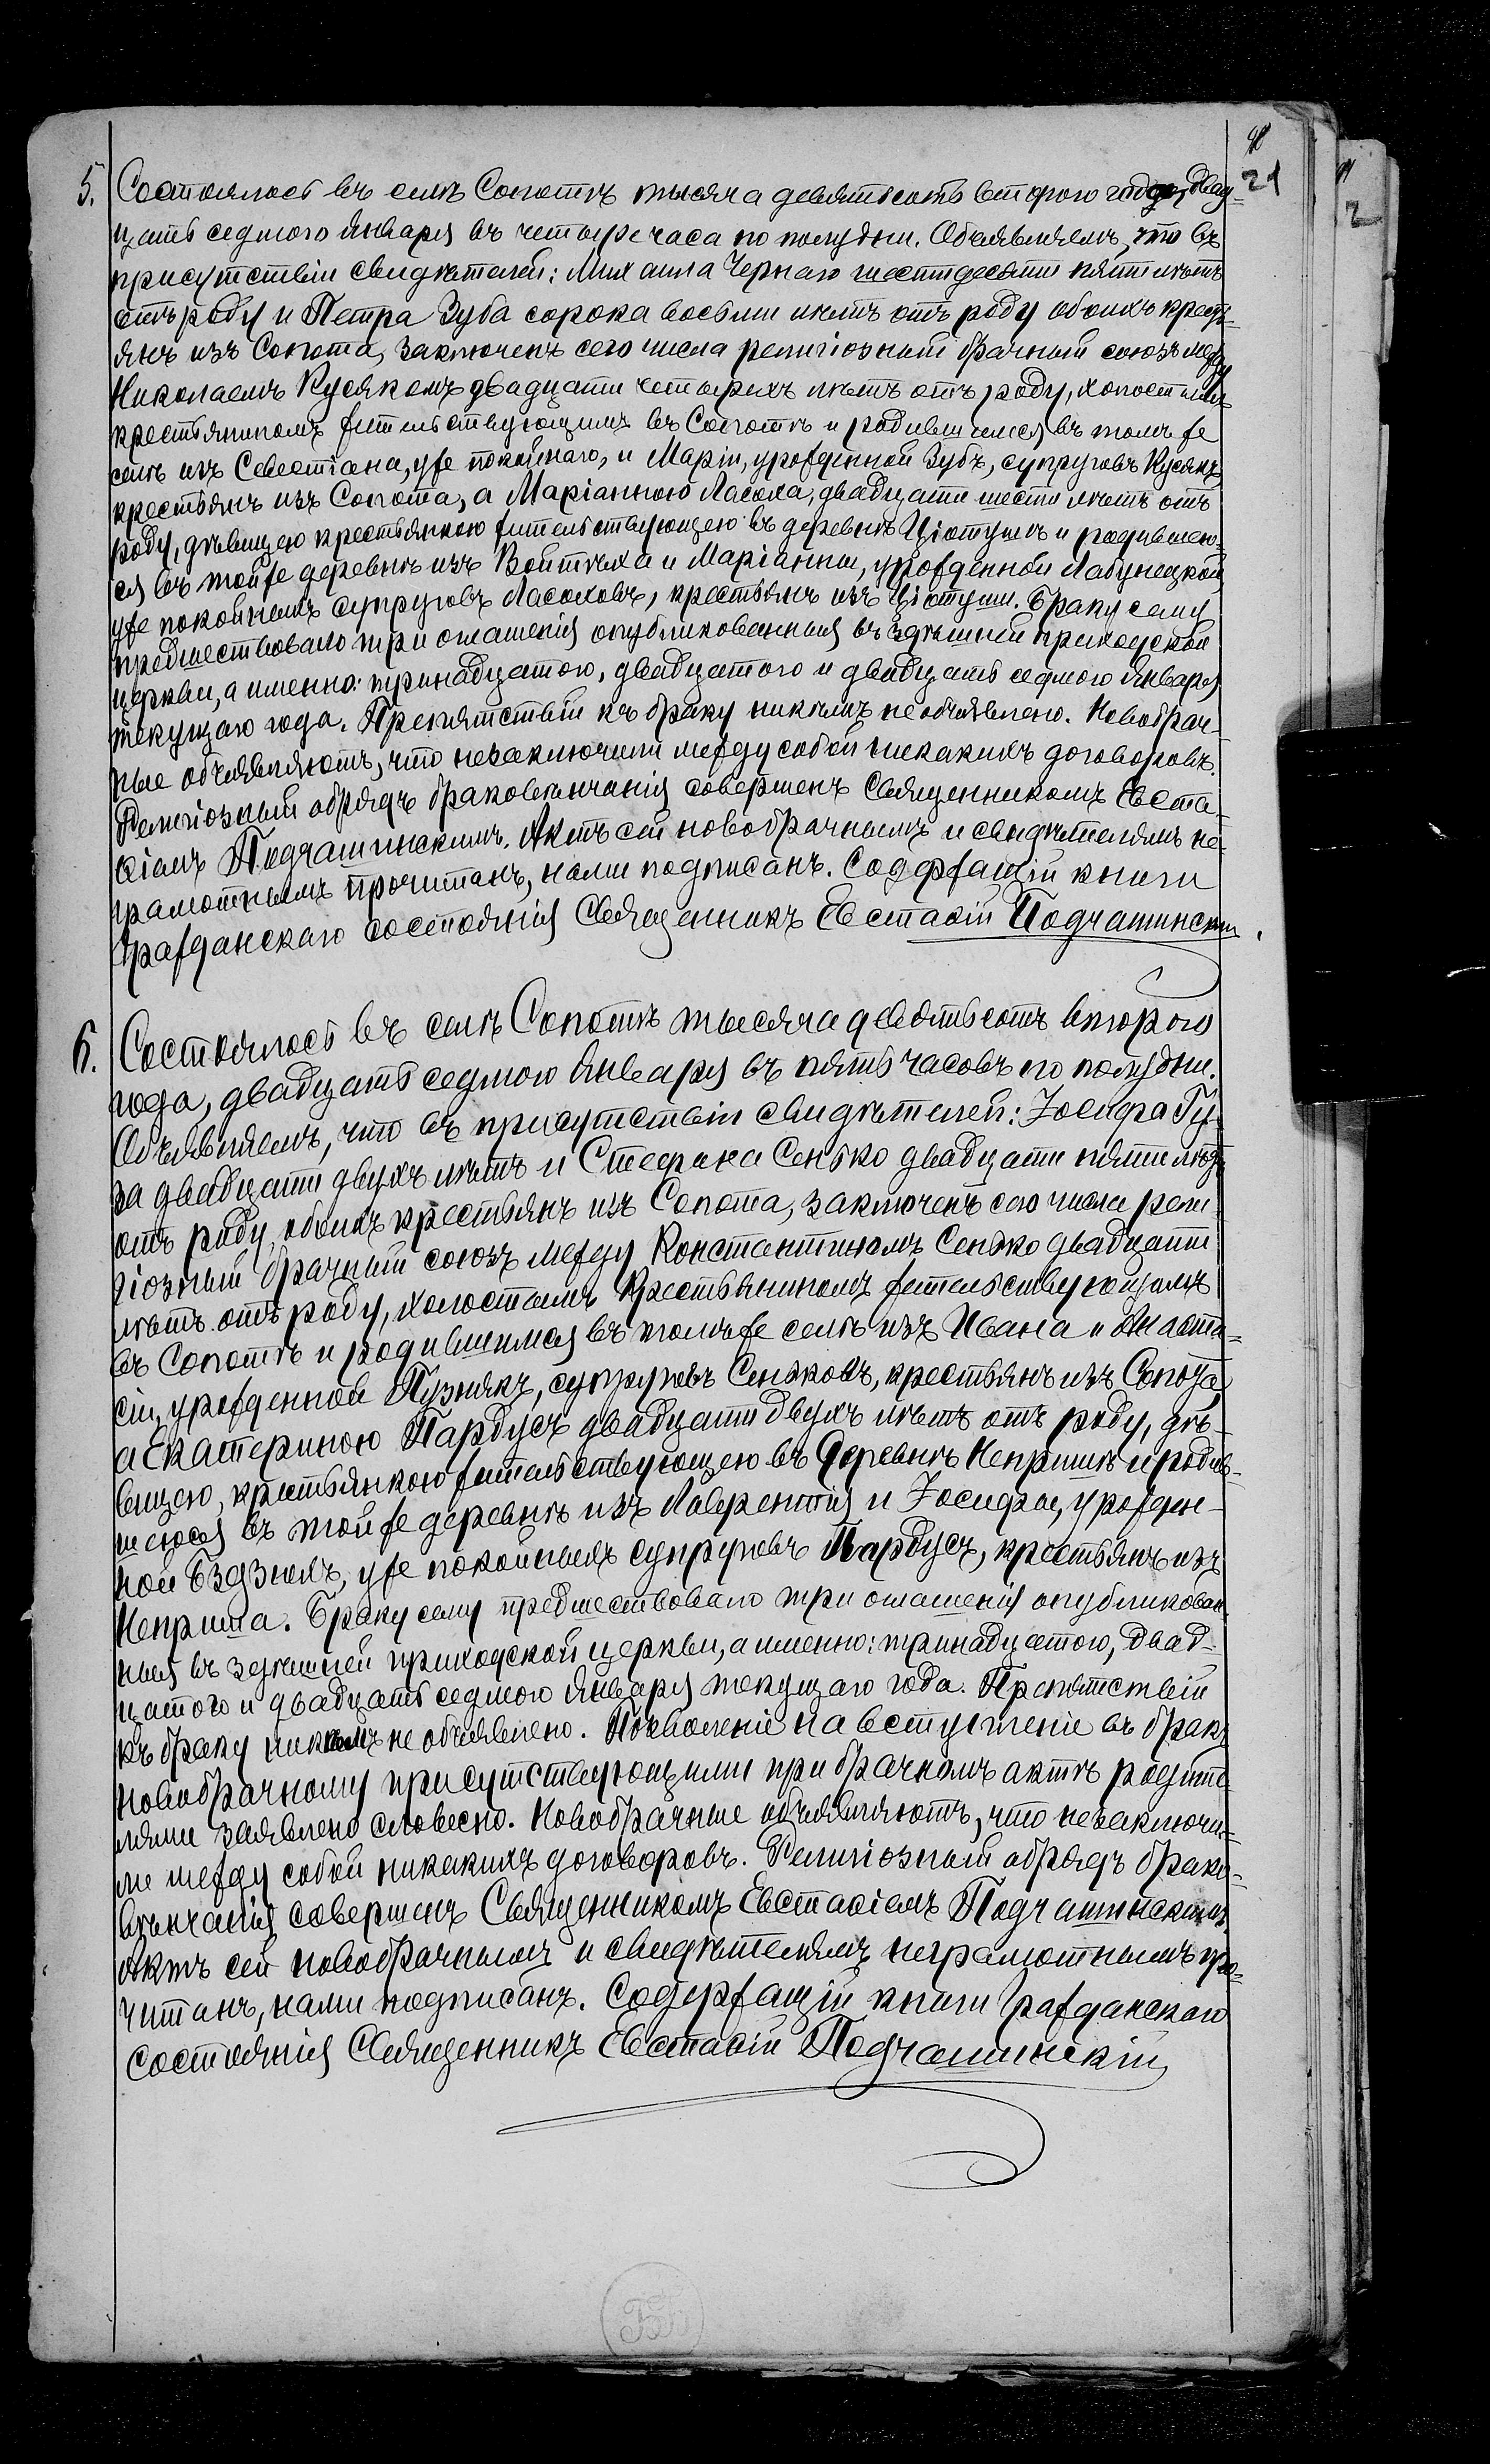 21
2
5. Состоялось въ селѣ Сопотѣ тысяча девятьсотъ второго года, двад-
цать седмого Января въ четыре часа по полудни. Объявляемъ, что въ
присутствіи свидѣтелей: Михаила Чернаго шестидесяти пяти лѣтъ
отъ роду и Петра Зуба сорока восьми лѣтъ отъ роду обоихъ кресть-
янъ изъ Сопота, заключенъ сего числа религіозный брачный союзъ между
Николаемъ Кусякомъ двадцати четырехъ лѣтъ отъ роду, холостымъ
крестьяниномъ жительствующимъ въ Сопотѣ и родившимся въ томъ же
селѣ изъ Севестіана, уже покойнаго, и Маріи, урожденной Зубъ, супруговъ Кусякъ,
крестьянъ изъ Сопота, а Маріанною Ласоха, двадцати шести лѣтъ отъ
роду, дѣвицею крестьянкою жительствующею въ деревнѣ Ціотушѣ и родившею-
ся въ той же деревнѣ изъ Войтѣха и Маріанны, урожденной Лабунецкой,
уже покойныхъ супруговъ Ласоховъ, крестьянъ изъ Ціотуши. Браку сему
предшествовало три оглашенія опубликованныя въ здѣшней приходской
церкви, а именно: тринадцатого, двадцатого и двадцать седмого Января
текущаго года. Препятствій къ браку никѣмъ не объявлено. Новобрач-
ные объявляютъ, что незаключили между собой никакихъ договоровъ.
Религіозный обрядъ браковѣнчанія совершенъ Священникомъ Евста-
ѳіемъ Подчашинскимъ. Актъ сей новобрачнымъ и свидѣтелямъ не-
грамотнымъ прочитанъ, нами подписанъ. Содержащій книги
Гражданскаго состоянія Священникъ Евстаѳій Подчашинскій.
6. Состоялось въ селѣ Сопотѣ тысяча девятьсотъ второго
года, двадцать седмого Января въ пять часовъ по полудни.
Объявляемъ, что въ присутствіи свидѣтелей: Іосифа Гу-
за двадцати двухъ лѣтъ и Стефана Сенько двадцати пяти лѣтъ
отъ роду, обоихъ крестьянъ изъ Сопота, заключенъ сего числа рели-
гіозный брачный союзъ между Константиномъ Сенько двадцати
лѣтъ отъ роду, холостымъ крестьяниномъ жительствующимъ
въ Сопотѣ и родившимся въ томъ же селѣ изъ Ивана и Анаста-
сіи, урожденной Пузнякъ, супруговъ Сеньковъ, крестьянъ изъ Сопота,
а Екатериною Пардусъ двадцати двухъ лѣтъ отъ роду, дѣ-
вицею, крестьянкою жительствующею въ деревнѣ Непришѣ и родив-
шеюся въ той же деревнѣ изъ Лаврентія и Іосифы, урожден-
ной Бздзюхъ, уже покойныхъ супруговъ Пардусъ, крестьянъ изъ
Неприша. Браку сему предшествовало три оглашенія опубликован-
ныя въ здѣшней приходской церкви, а именно: тринадцатого, двад-
цатого и двадцать седмого Января текущаго года. Препятствій
къ браку никѣмъ не объявлено. Позволеніе на вступленіе въ бракъ
новобрачному присутствующими при брачномъ актѣ родите-
лями заявлено словесно. Новобрачные объявляютъ, что незаключи-
ли между собой никакихъ договоровъ. Религіозный обрядъ брако-
вѣнчанія совершенъ Священникомъ Евстаѳіемъ Подчашинскимъ.
Актъ сей новобрачнымъ и свидѣтелямъ неграмотнымъ про-
читанъ, нами подписанъ. Содержащій книги Гражданскаго
состоянія Священникъ Евстаѳій Подчашинскій